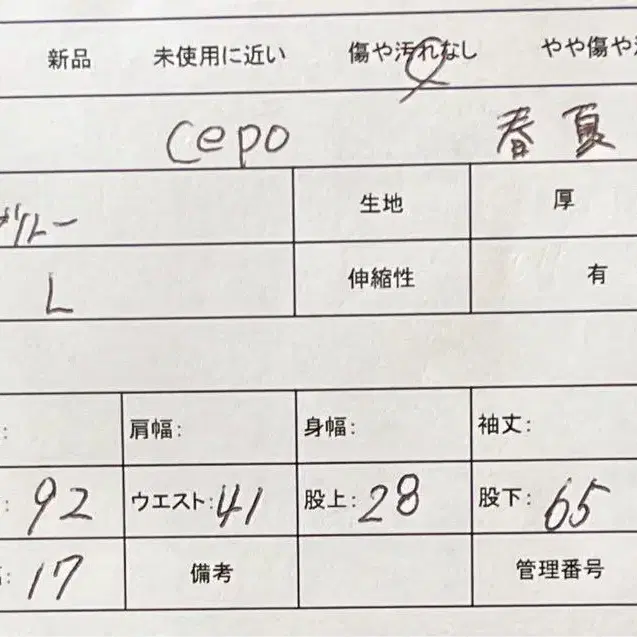 新品 未使用に近い 傷や汚れなし やや傷や
cepo 春夏
ブルー 生地 厚
L 伸縮性 有
: 肩幅: 身幅: 袖丈:
: 92 ウエスト: 41 股上: 28 股下: 65
: 17 備考 管理番号